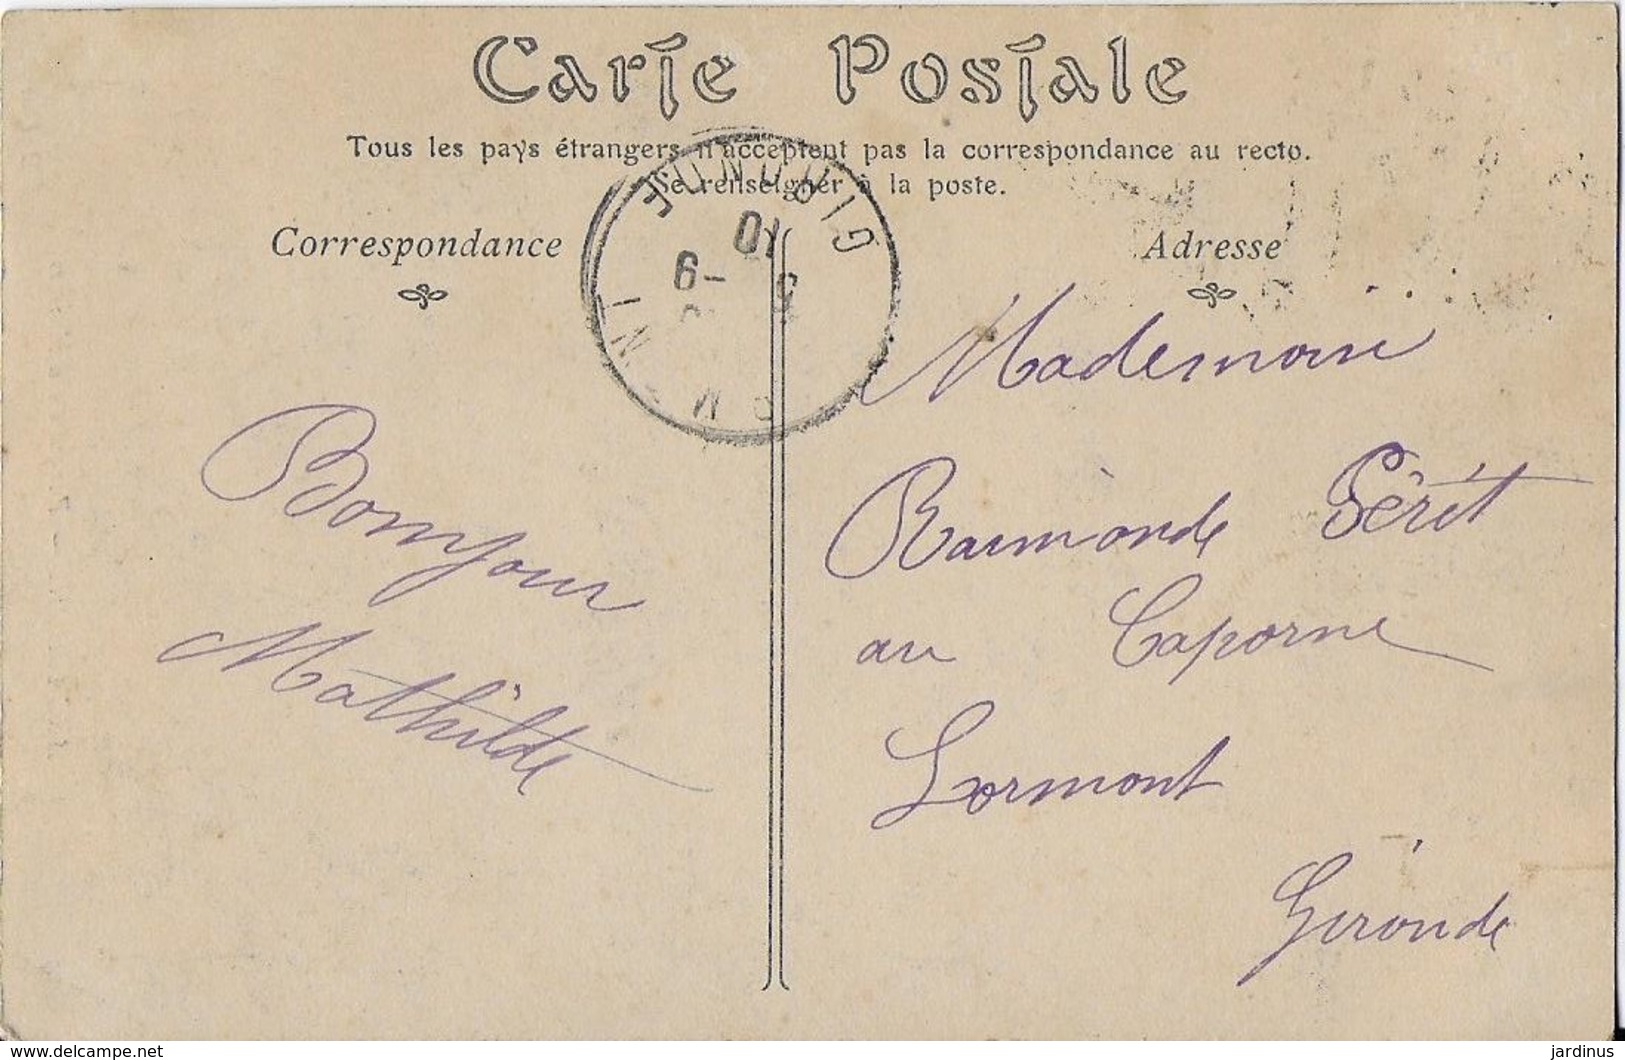 Carte Postale
Tous les pays étrangers n'acceptent pas la correspondance au recto.
Se renseigner à la poste.
Correspondance
Adresse
GIRONDE
Bonjour
Mathilde
Raimonde Pérét
au Caporne
Lormont
Gironde
www.delcampe.net
jardinus